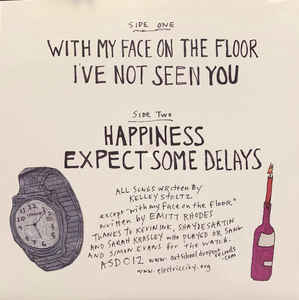 SIDE ONE
WITH MY FACE ON THE FLOOR
I'VE NOT SEEN YOU
SIDE TWO
HAPPINESS
EXPECT SOME DELAYS
ALL SONGS WRITTEN BY
KELLEY STOLTZ
except "with my Face on the Floor"
written by EMITT RHODES
THANKS TO KEVIN INK, SHAYDE SARTIN
AND SARAH KEASLEY who PLAYED OR SANG
AND SIMON EVANS for THE WATCH.
ASD012
www.electriccity.org